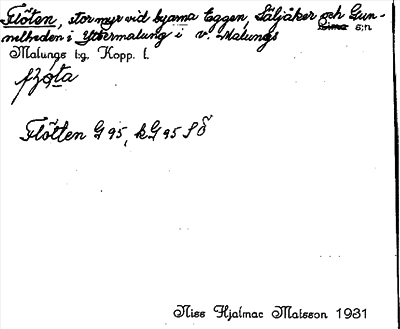 Flöten, stor myr vid byarna Eggen, Säljåker och Gun-
nilheden i Yttermalung i v. Malungs
Lima s:n
Malungs tg. Kopp. l.
Flötten G 95, k.G 95 S Ö
Niss Hjalmar Matsson 1931